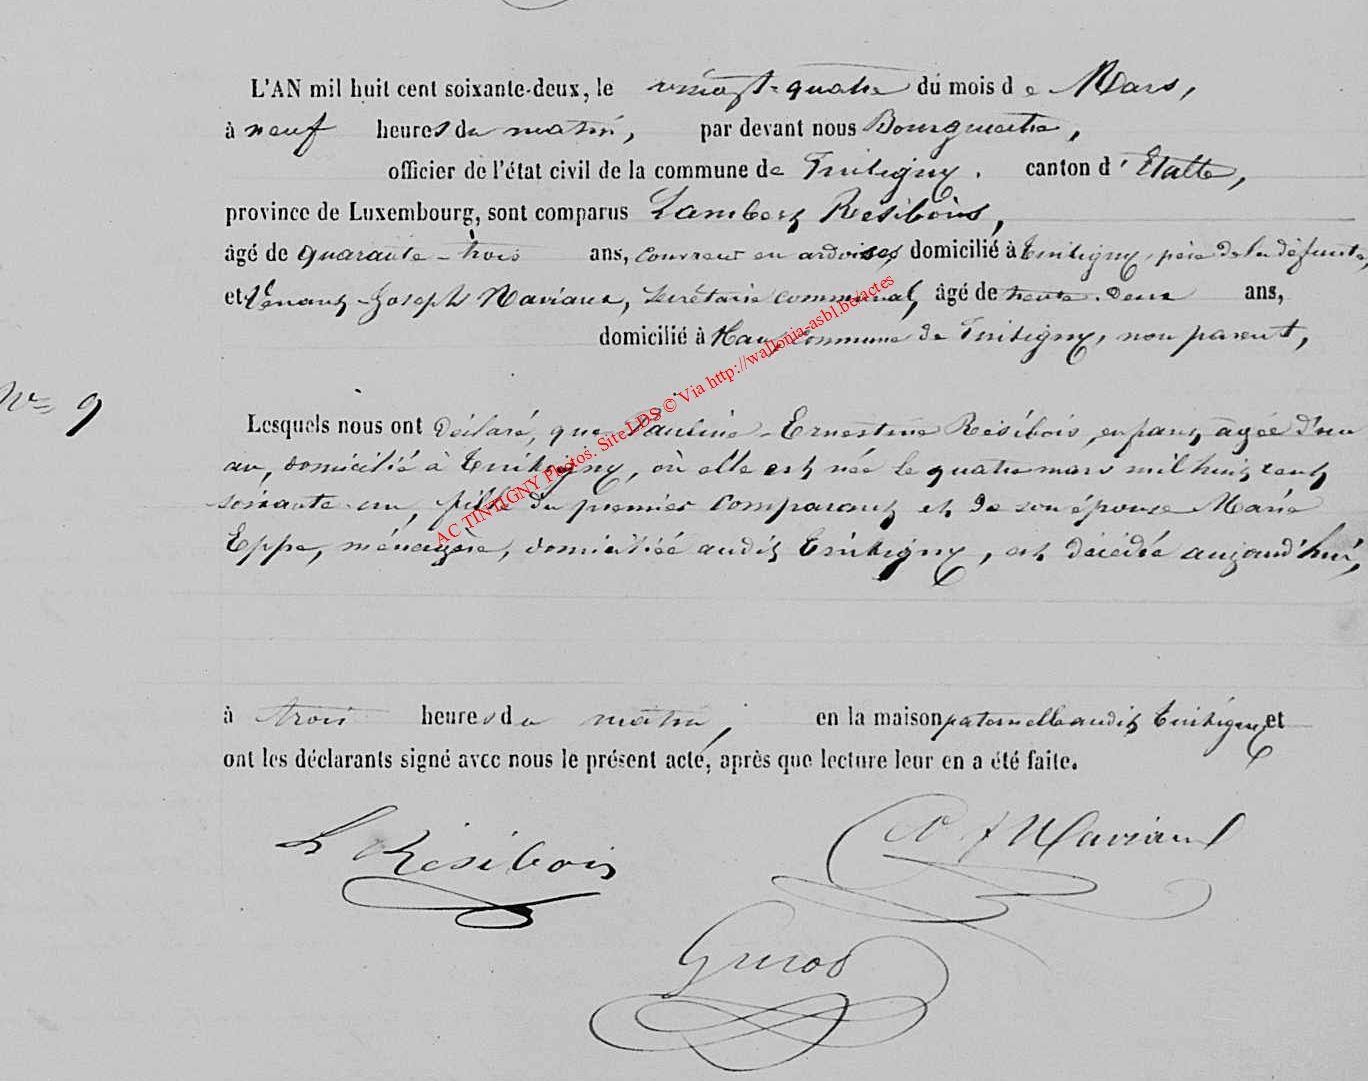 L'AN mil huit cent soixante-deux, le vingt-quatre du mois de Mars,
à neuf heures du matin, par devant nous Bourgmestre,
officier de l'état civil de la commune de Tintigny. canton d'Etalle,
province de Luxembourg, sont comparus Lambert Résibois,
âgé de quarante-trois ans, couvreur en ardoises domicilié à Tintigny, père de la défunte,
et Joseph Naviaux, Secrétaire communal, âgé de trente-deux ans,
domicilié à Han, Commune de Tintigny, non parent,
N° 9
Lesquels nous ont déclaré, que Pauline-Ernestine Résibois, enfant, agée d'un
an, domicilié à Tintigny, où elle est née le quatre mars mil huit cent
soixante-un, fille du premier comparant et de son épouse Marie
Eppe, ménagère, domiciliée audit Tintigny, est décédée aujourd'hui,
à trois heures du matin, en la maison paternelle audit Tintigny et
ont les déclarants signé avec nous le présent acte, après que lecture leur en a été faite.
L Résibois
J Naviaux
AC TINTIGNY Photos. Site LDS © Via http://wallonia-asbl.be/actes